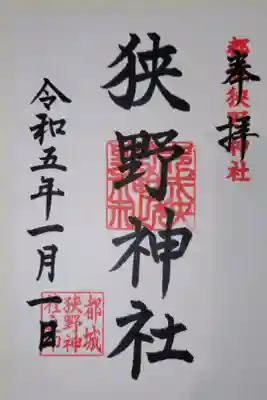 奉拝
都城狭野神社
狭野神社
令和五年一月一日
都城
狭野神